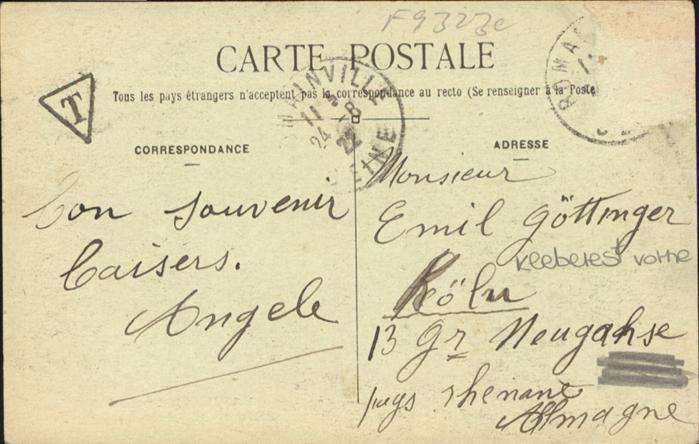 F9323c
CARTE POSTALE
T
Tous les pays étrangers n'acceptent pas la correspondance au recto (Se renseigner à la Poste
INVILLE
11
24 - 8
22
SEINE
ROMA
CORRESPONDANCE
ADRESSE
Bon souvenir
Baisers.
Angele
Monsieur
Emil Göttinger
Kleberest vorne
Köln
13 Gr Neugahse
pays rhenane
Allmagne